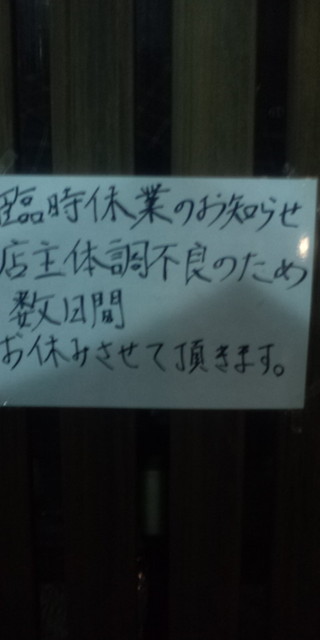 臨時休業のお知らせ
店主体調不良のため
数日間
お休みさせて頂きます。